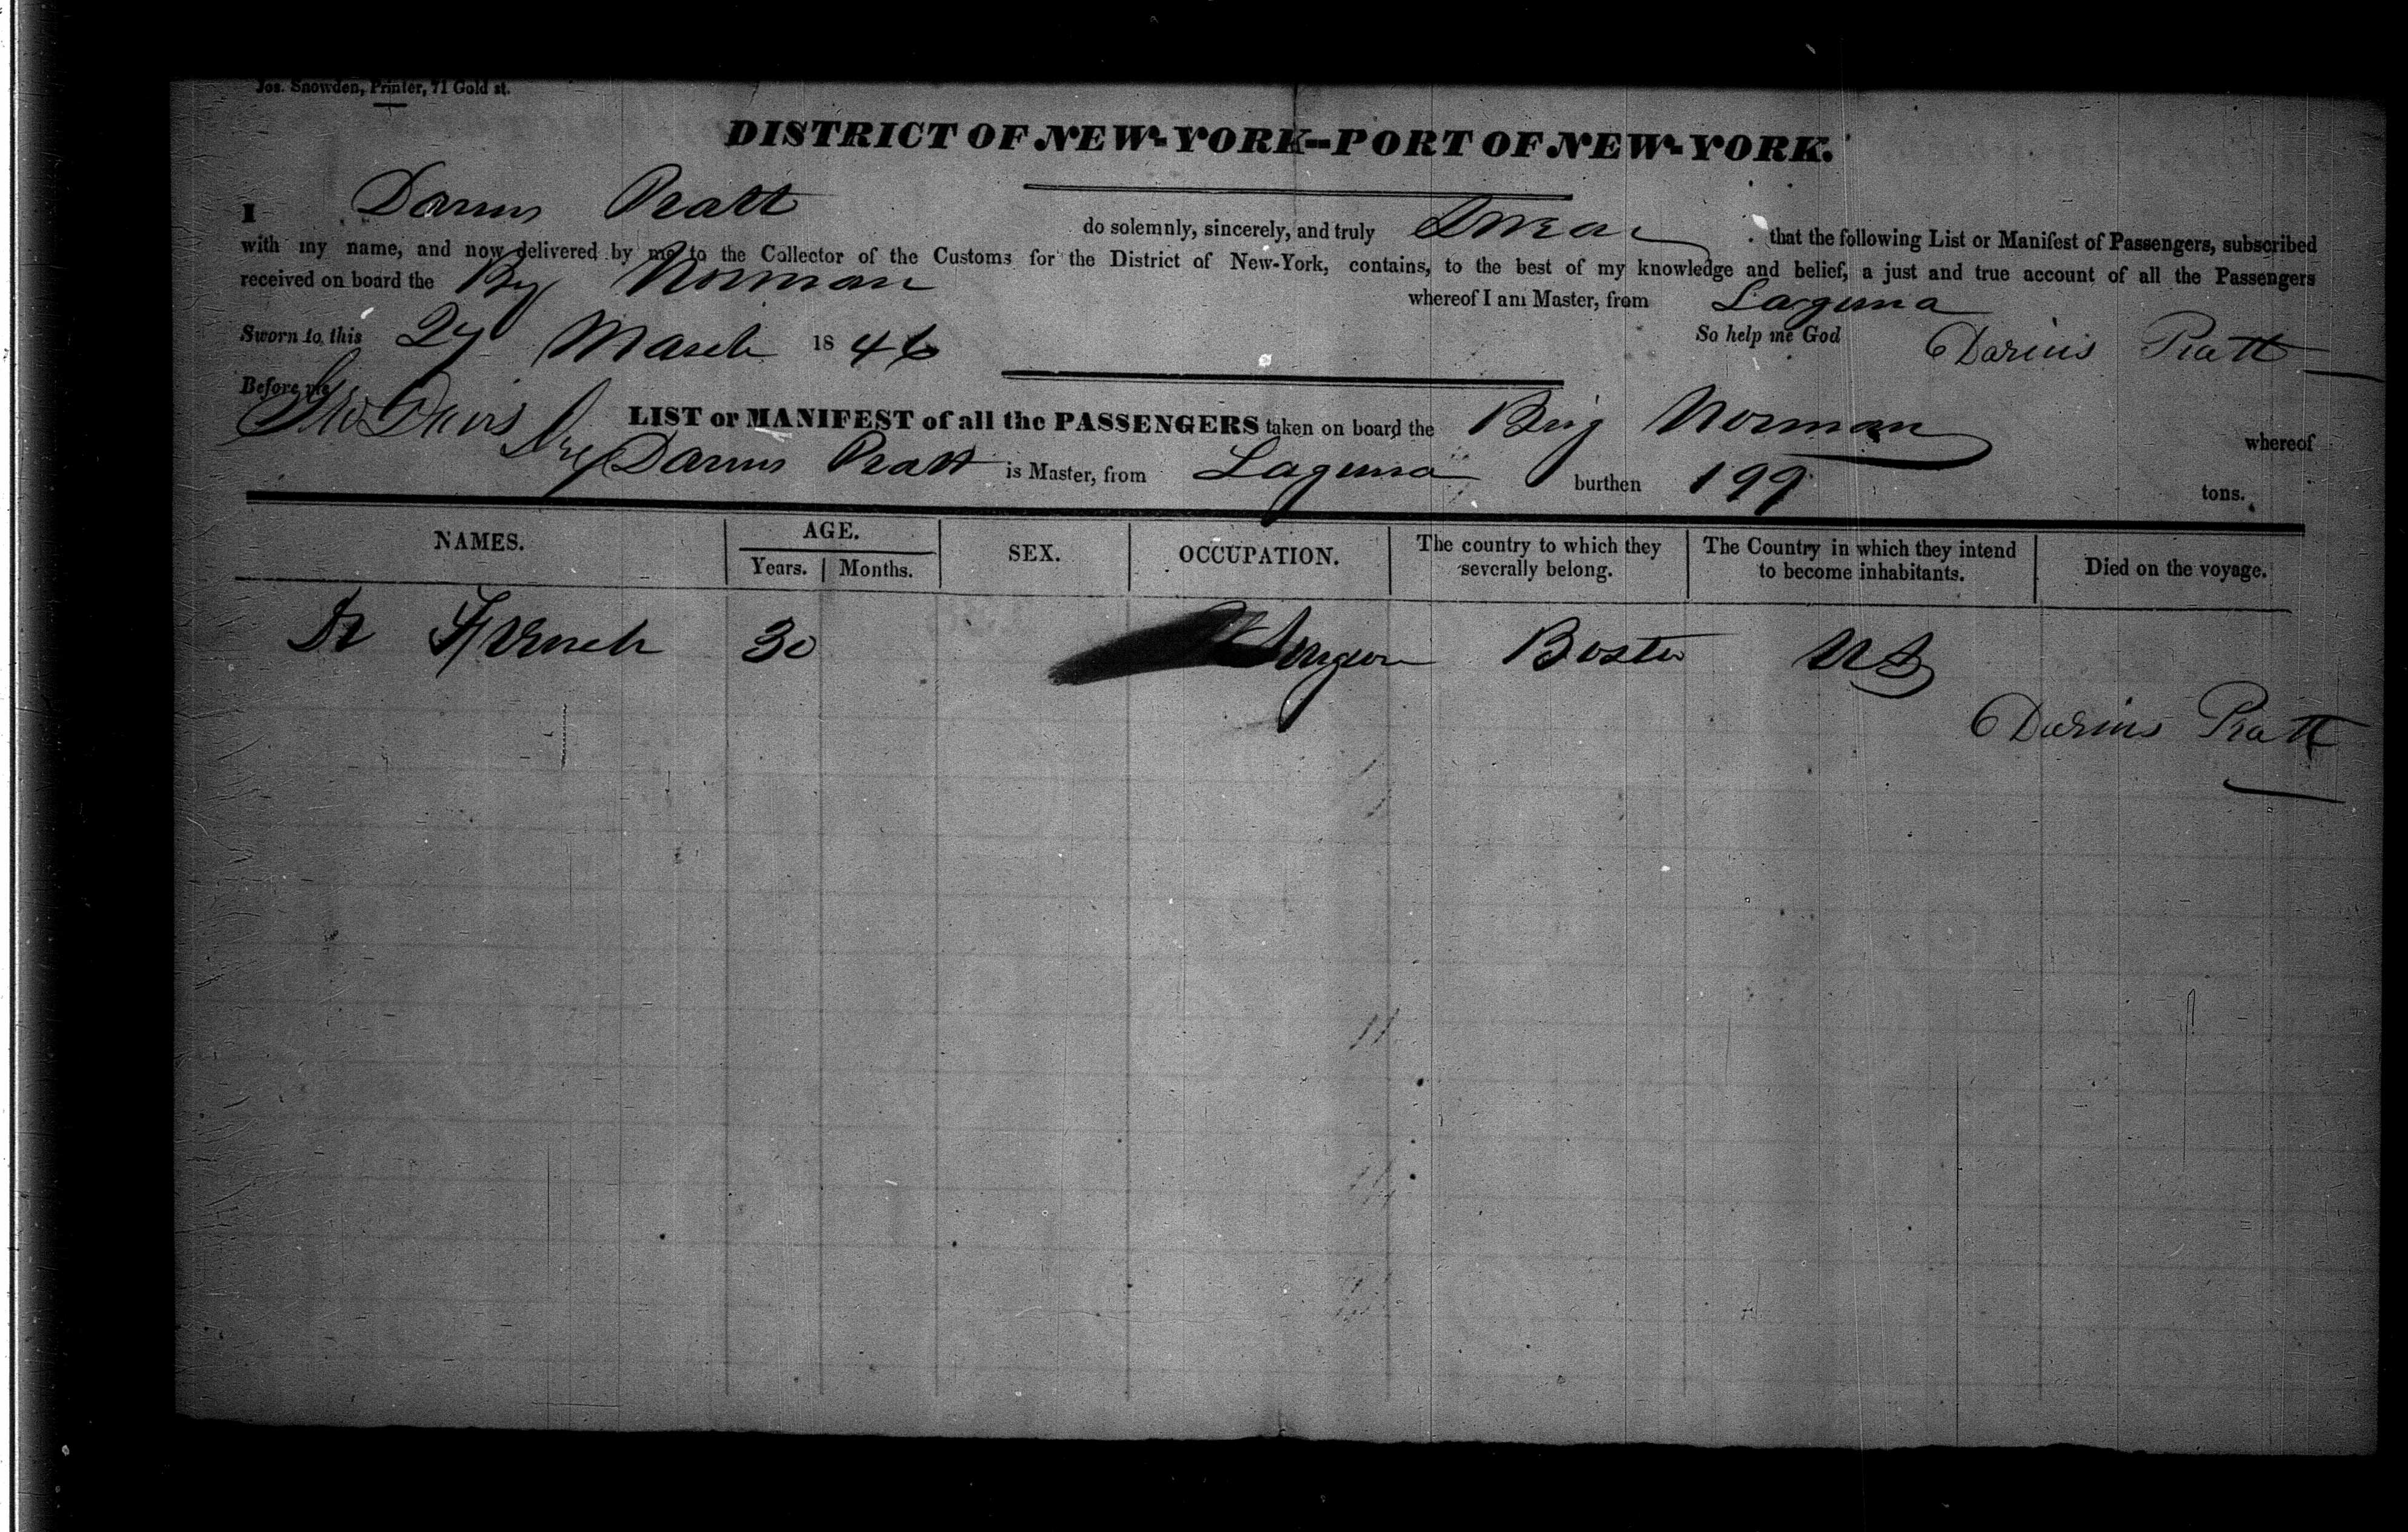 Jos. Snowden, Printer, 71 Gold st.
DISTRICT OF NEW-YORK--PORT OF NEW-YORK.
I Darius Pratt do solemnly, sincerely, and truly Swear that the following List or Manifest of Passengers, subscribed
with my name, and now delivered by me to the Collector of the Customs for the District of New-York, contains, to the best of my knowledge and belief, a just and true account of all the Passengers
received on board the Brig Norman whereof I am Master, from Laguna
Sworn to, this 27 March 1846 So help me God Darius Pratt
Before me
Davis LIST or MANIFEST of all the PASSENGERS taken on board the Brig Norman whereof
Darius Pratt is Master, from Laguna burthen 199 tons.
NAMES. AGE. SEX. OCCUPATION. The country to which they severally belong. The Country in which they intend to become inhabitants. Died on the voyage.
Years. Months.
Dr French 30 Surgeon Boston US
Darius Pratt